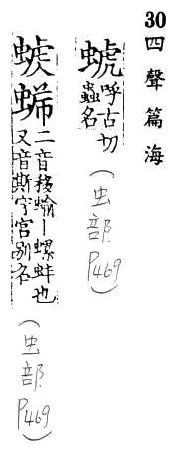 30 四聲篇海
呼古切
蟲名
(虫部 P469)
二音移蝓｜螺蚌也
又音斯守宫别名
(虫部 P469)